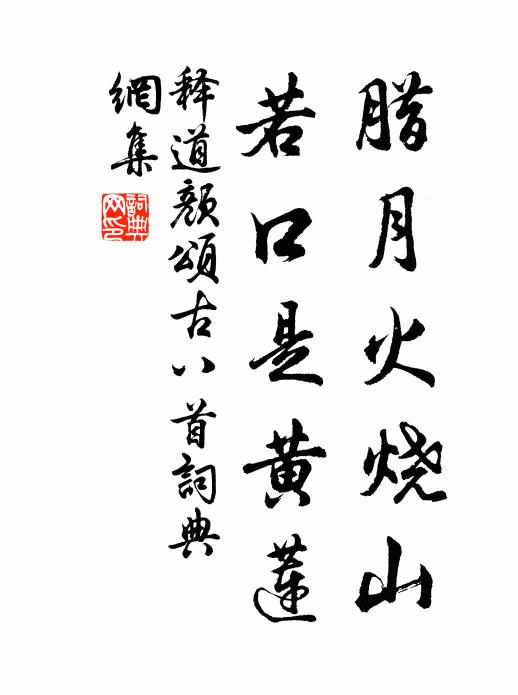 腊月火烧山
若口是黄莲
释道颜颂古八首詞典
網集
詞典网印